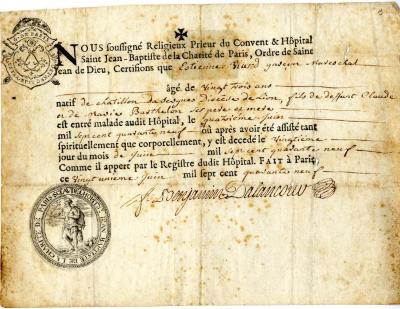 NOUS soussigné Religieux Prieur du Convent & Hôpital
Saint Jean-Baptiste de la Charité de Paris, Ordre de Saint
Jean de Dieu, Certifions que Estienne Viard garçon Mareschal
âgé de Vingt Trois ans
natif de Chatillon Diocèse de fils de deffunt Claude
et de Marie Barthelon ses pere et mere
est entré malade audit Hôpital, le quatrieme Juin
mil sept cent quarante neuf où après avoir été assisté tant
spirituellement que corporellement, y est decedé le Vingtieme
jour du mois de Juin mil sept cent quarante neuf
Comme il appert par le Registre dudit Hôpital. FAIT à Paris,
ce Vingt unieme Juin mil sept cent quarante neuf
f. Benjamin Dalancour